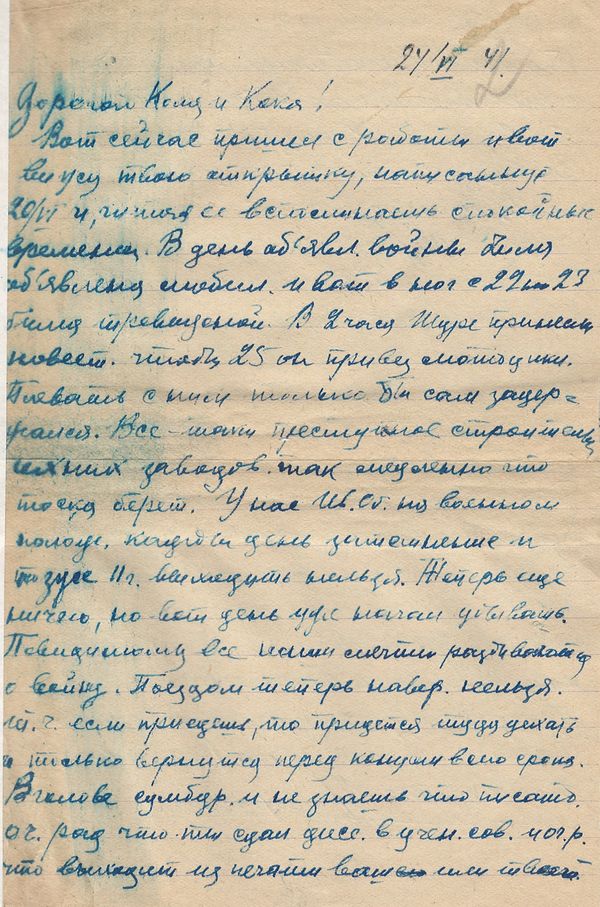 24/VI 41.
Дорогой Коля и Кока!
Вот сейчас пришел с работы и вот
вижу твою открытку, написанную
20/VI и, читая ее вспоминаешь спокойные
времена. В день объявл. войны была
объявлена мобил. и вот в ноч с 22 на 23
была тревожной. В 2 часа Шуре принесли
повест. чтобы 25 он привез мотоцикл.
Плевать с ним только бы сам задер-
жался. Все-таки преступное строитель
заводов так медленно что
тоска берет. У нас Ив. Об. на военном
полож. каждый день затемнение и
позже 11 г. выходить нельзя. Теперь еще
ничего, но вот день уже начал убывать.
Повидимому все наши мечты разбиваются
о войну. Поездом теперь навер. нельзя.
т. ч. если приедешь, то придется туда уехать
и только вернутся перед концом его срока.
В голове сумбур и не знаешь что писать.
оч. рад что ты сдал дисс. в учен. сов.
что выходит из печати ваше или твоей